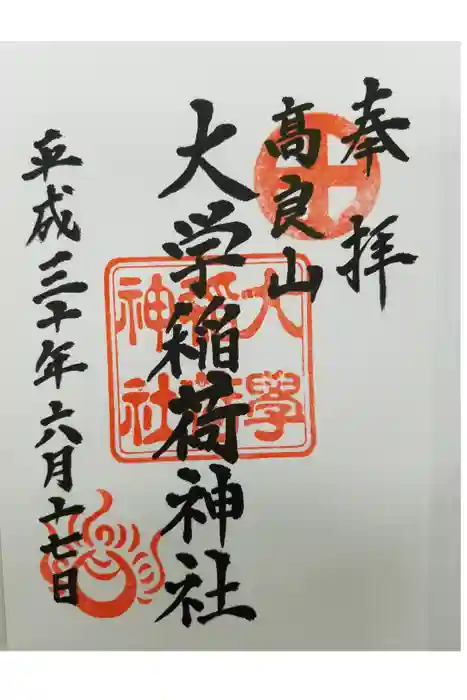 奉拝
高良山
大学稲荷神社
平成三十年六月十七日
大學
稲荷
神社